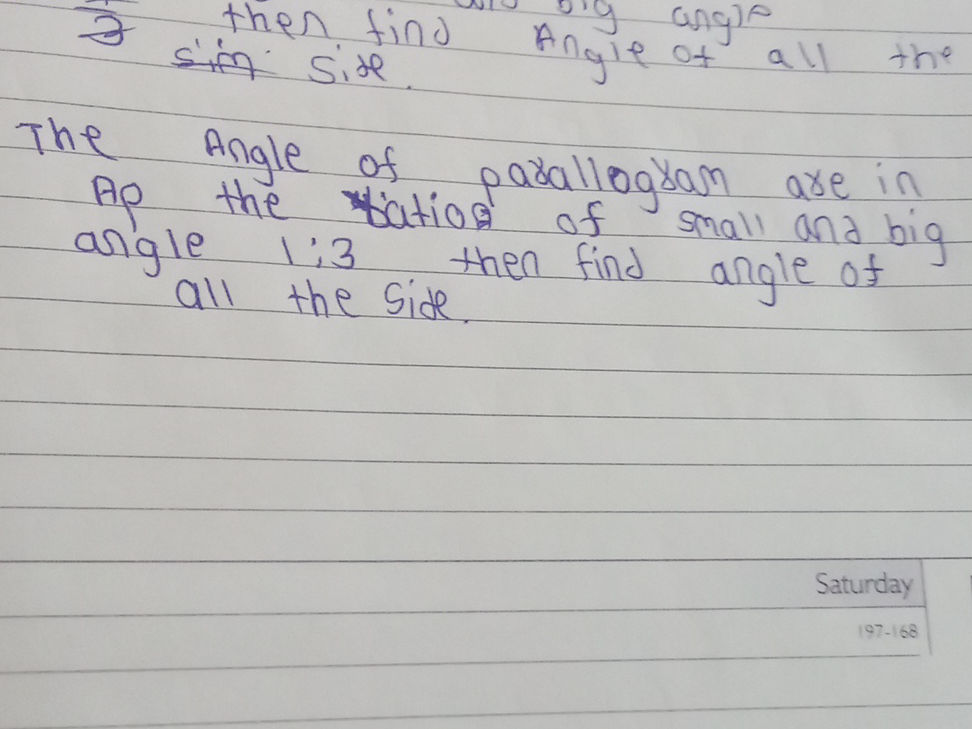 big angle
then find Angle of all the
side.
The Angle of parallogram are in
Ap the ratios of small and big
angle 1:3 then find angle of
all the side.
Saturday
197-168